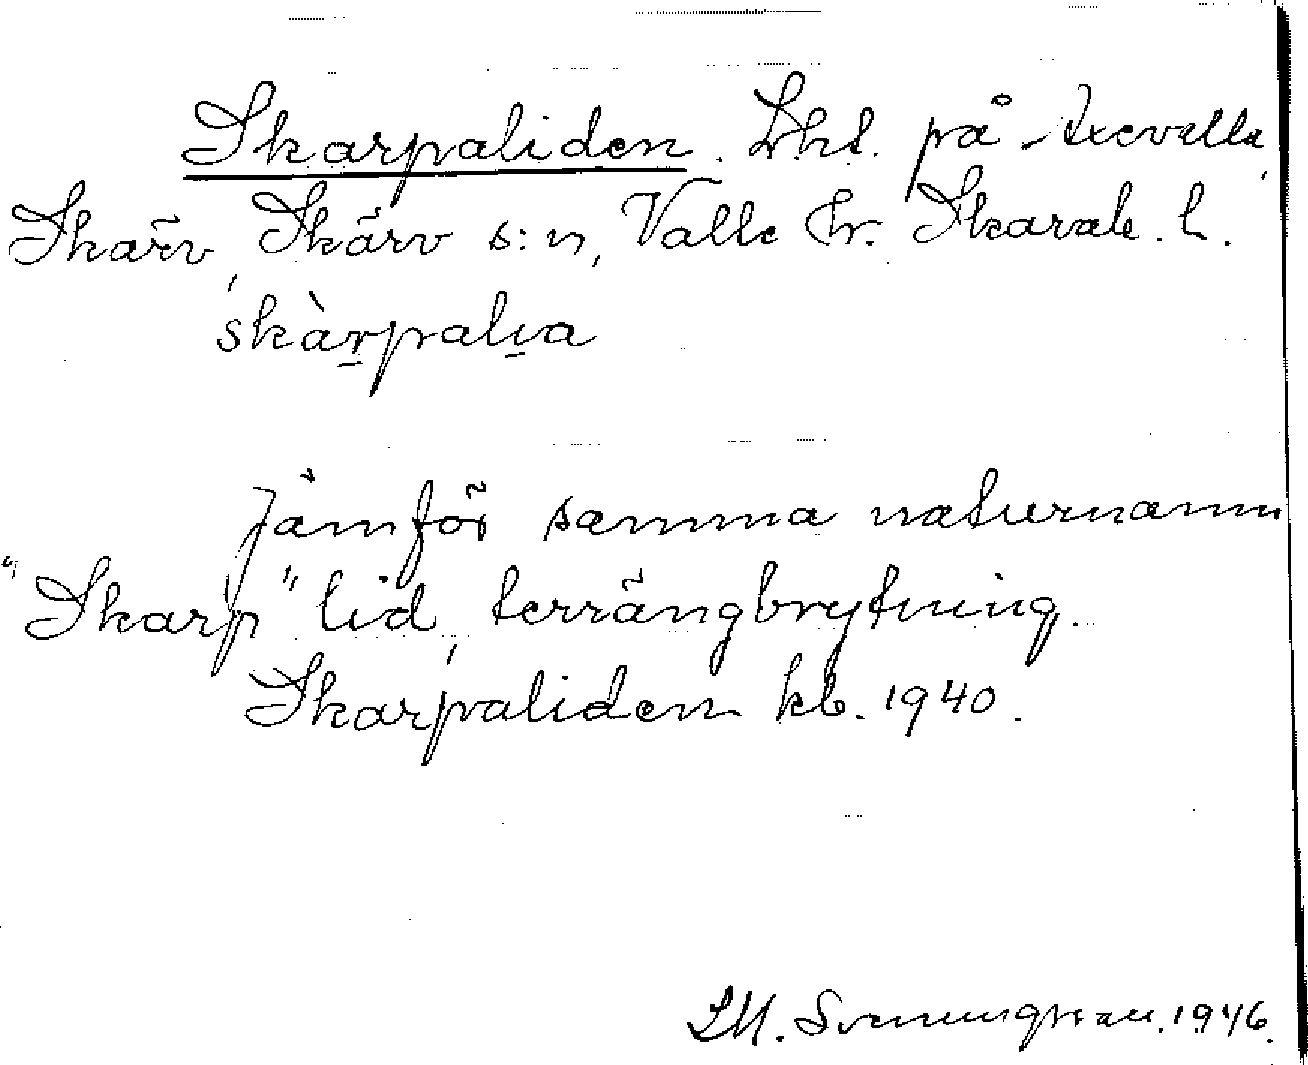 Skarpaliden. Lht. på Axevalla,
Skärv, Skärv s:n, Valle hr. Skarab. l.
skàrpalıa
Jämför samma naturnamn
"Skarp" lid, terrängbrytning.
Skarpaliden kb. 1940.
SM. Svenungsson. 1946.